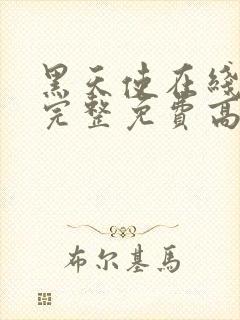 黑天使在线
完整免費高
布尔基馬